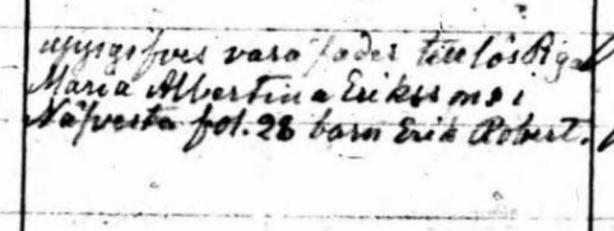 uppgifves vara fader till lös Piga
Maria Albertina Erikssons i
Näfvesta fol. 28 barn Erik Robert.